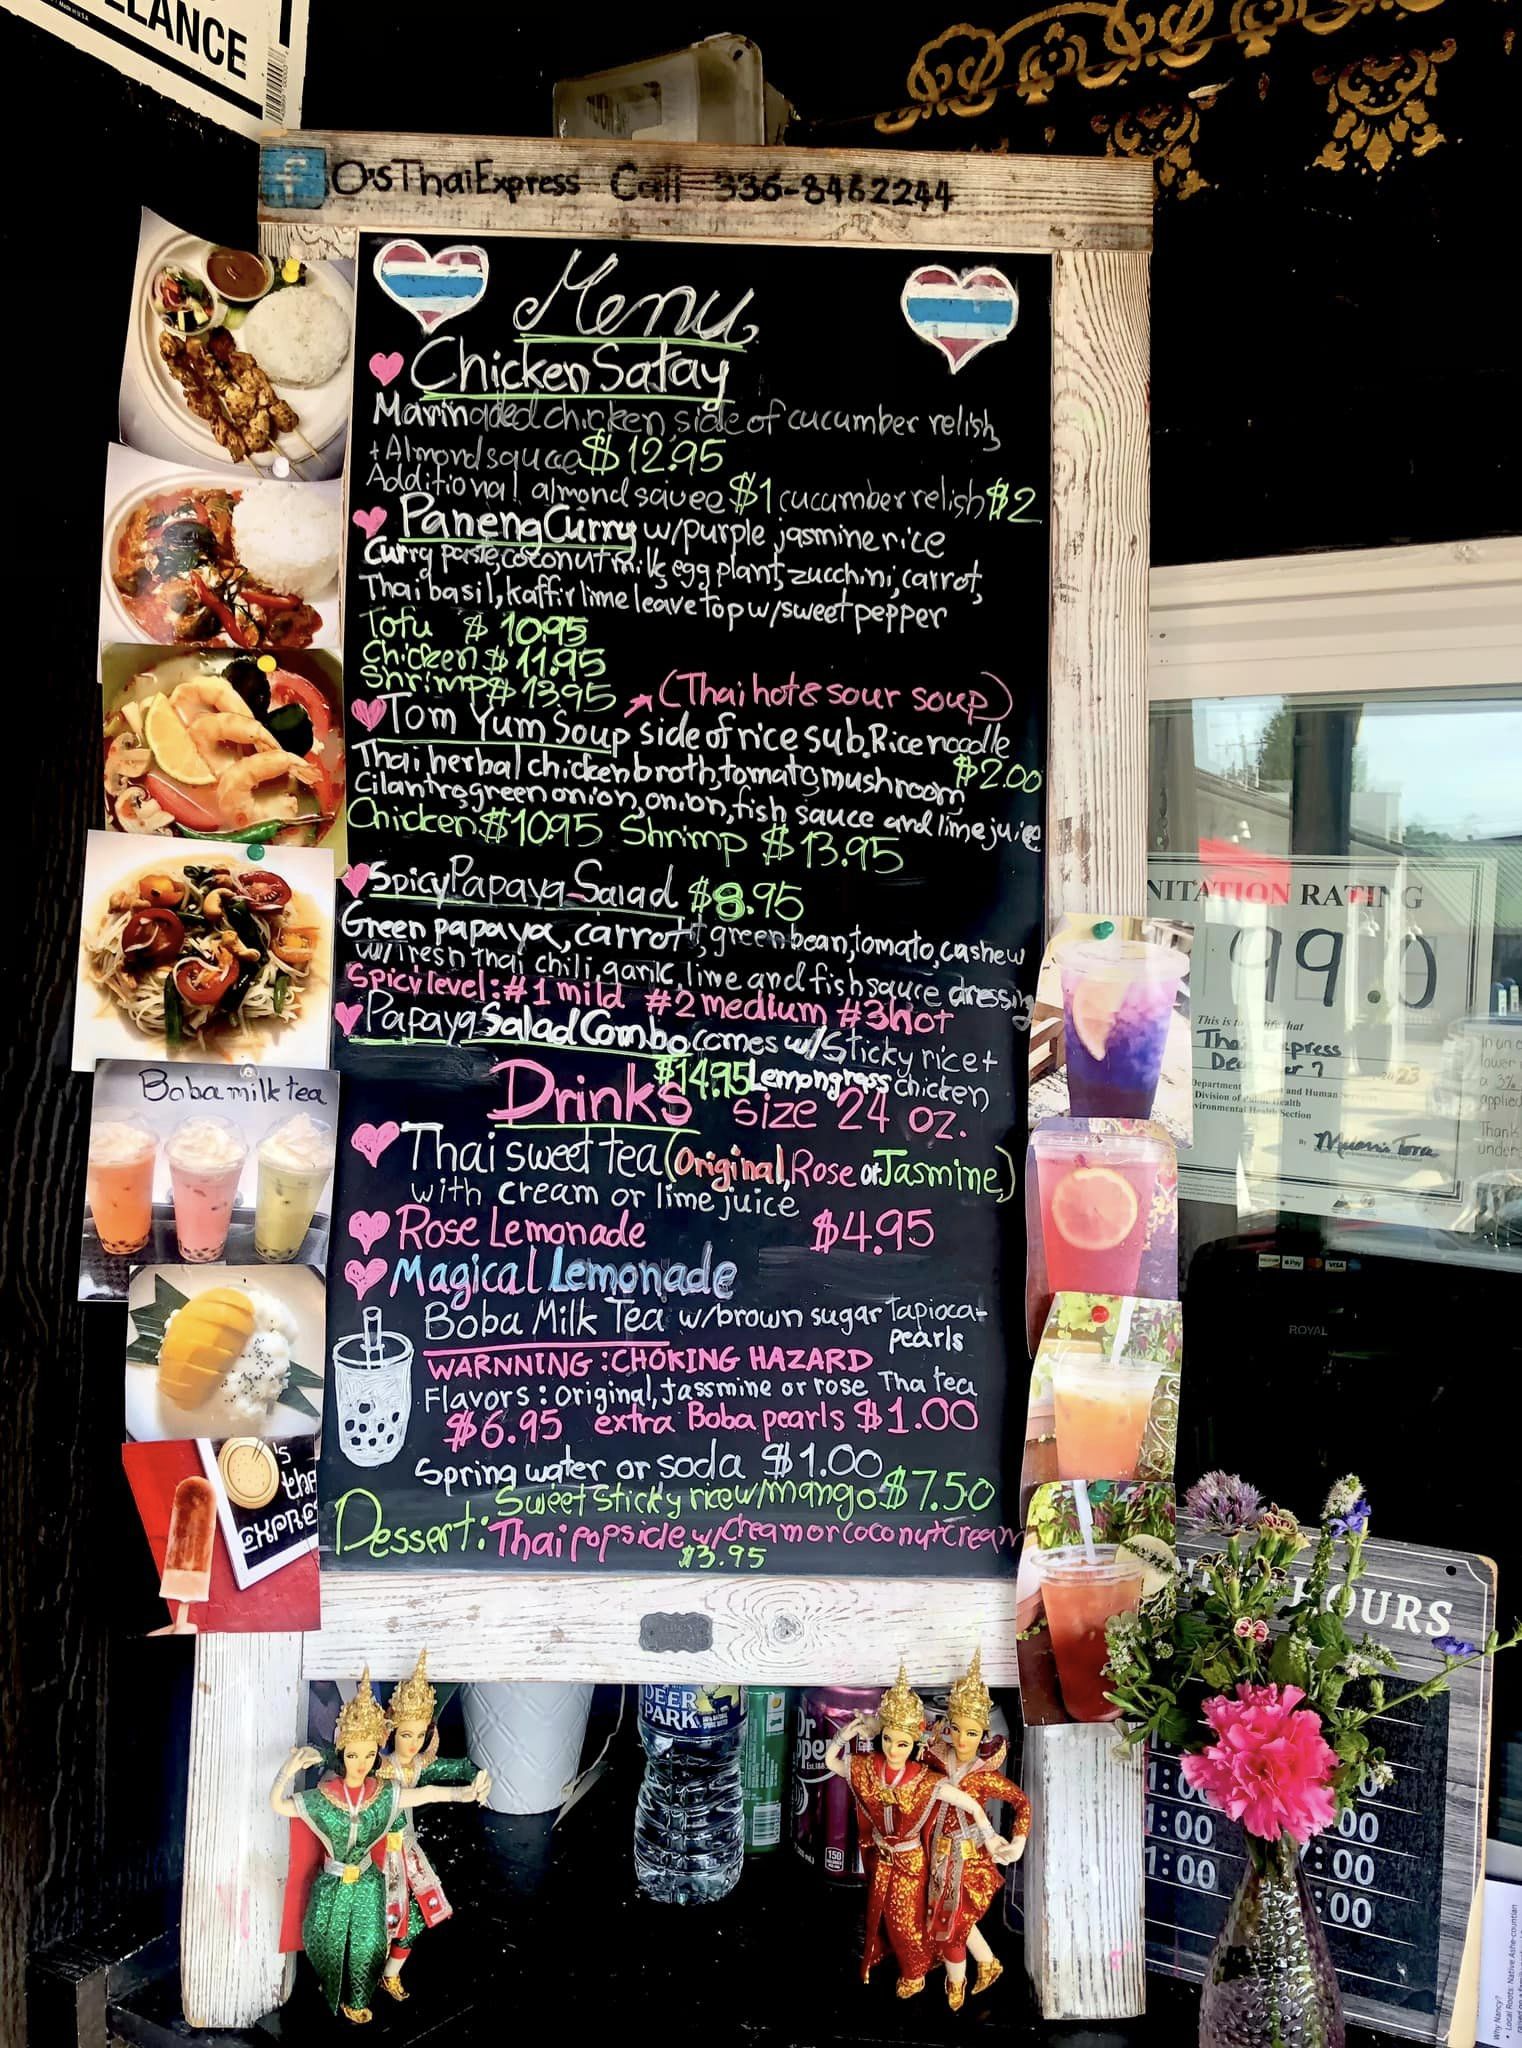 LLANCE
f O'sThaiExpress Call 336-8462244
Menu
Chicken Satay
Marinaded chicken, side of cucumber relish
+ Almond sauce $12.95
Additional almond sauce $1 cucumber relish $2
Paneng Curry w/purple jasmine rice
Curry paste, coconut milk, egg plant, zucchini, carrot,
Thai basil, kaffir lime leave top w/sweet pepper
Tofu $ 10.95
Chicken $ 11.95
Shrimp $ 13.95
(Thai hot & sour soup)
Tom Yum Soup side of rice sub. Rice noodle
$2.00
Thai herbal chicken broth, tomato, mushroom
Cilantro, green onion, onion, fish sauce and lime juice
Chicken $10.95 Shrimp $13.95
Spicy Papaya Salad $8.95
Green papaya, carrot, green bean, tomato, cashew
w/fresh thai chili, garlic, lime and fish sauce dressing
Spicy level: #1 mild #2 medium #3 hot
Papaya Salad Combo comes w/Sticky rice +
$14.95 Lemongrass chicken
Drinks size 24 oz.
Thai sweet tea (Original, Rose or Jasmine,)
with cream or lime juice
Rose Lemonade $4.95
Magical Lemonade
Boba Milk Tea w/brown sugar Tapioca-
pearls
WARNNING : CHOKING HAZARD
Flavors : original, Jassmine or rose Tha tea
$6.95 extra Boba pearls $1.00
Spring water or soda $1.00
Dessert: Sweet sticky rice w/mango $7.50
Thai popsicle w/cream or coconut cream
$3.95
Boba milk tea
O's
tha
EXPRE
NITATION RATING
99.0
This is to certify that
Thai Express
December 7 2023
Department and Human
Division of Public Health
Environmental Health Section
By
ROYAL
Pay VISA
DEER
PARK
Dr
pper
150
HOURS
1:00
1:00
1:00
:00
:00
:00
Why Nancy?
Local Roots: Native Ashe-countian